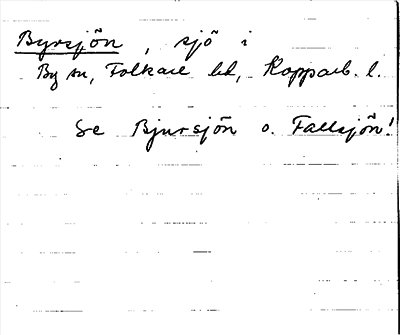 Byrsjön, sjö i
By sn, Folkare hd, Kopparb. l.
Se Bjursjön o. Fallsjön!